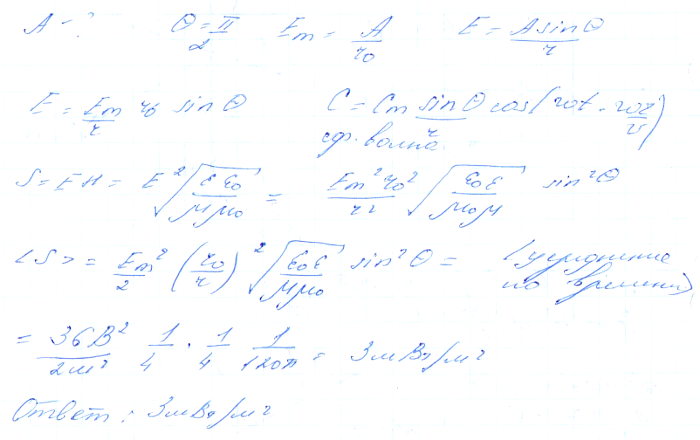 A - ? θ = π/2 E_m = A/r_0 E = A sin θ / r
E = E_m/r r_0 sin θ C = C_m sin θ/r cos(ωt - ωr/v)
сф. волна
S = EH = E² √(εε_0/μμ_0) = E_m² r_0²/r² √(ε_0ε/μ_0μ) sin² θ
<S> = E_m²/2 (r_0/r)² √(ε_0ε/μμ_0) sin² θ = (усреднение
по времени)
= 36В²/2м² 1/4 · 1/4 1/120π = 3мВт/м²
Ответ: 3мВт/м²